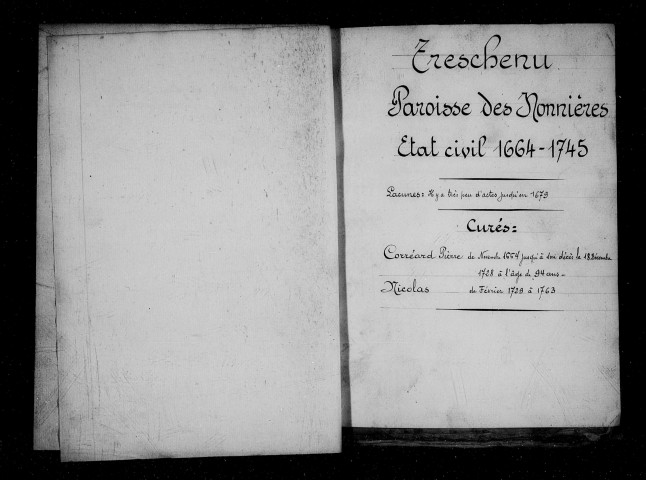 Treschenu
Paroisse des Nonnières
Etat civil 1664-1745
Lacunes: Il y a très peu d'actes jusqu'en 1679
Curés:
Corréard Pierre de Novembre 1664 jusqu'à son décès le 18 Décembre
1728 à l'âge de 94 ans-
Nicolas de Février 1729 à 1763